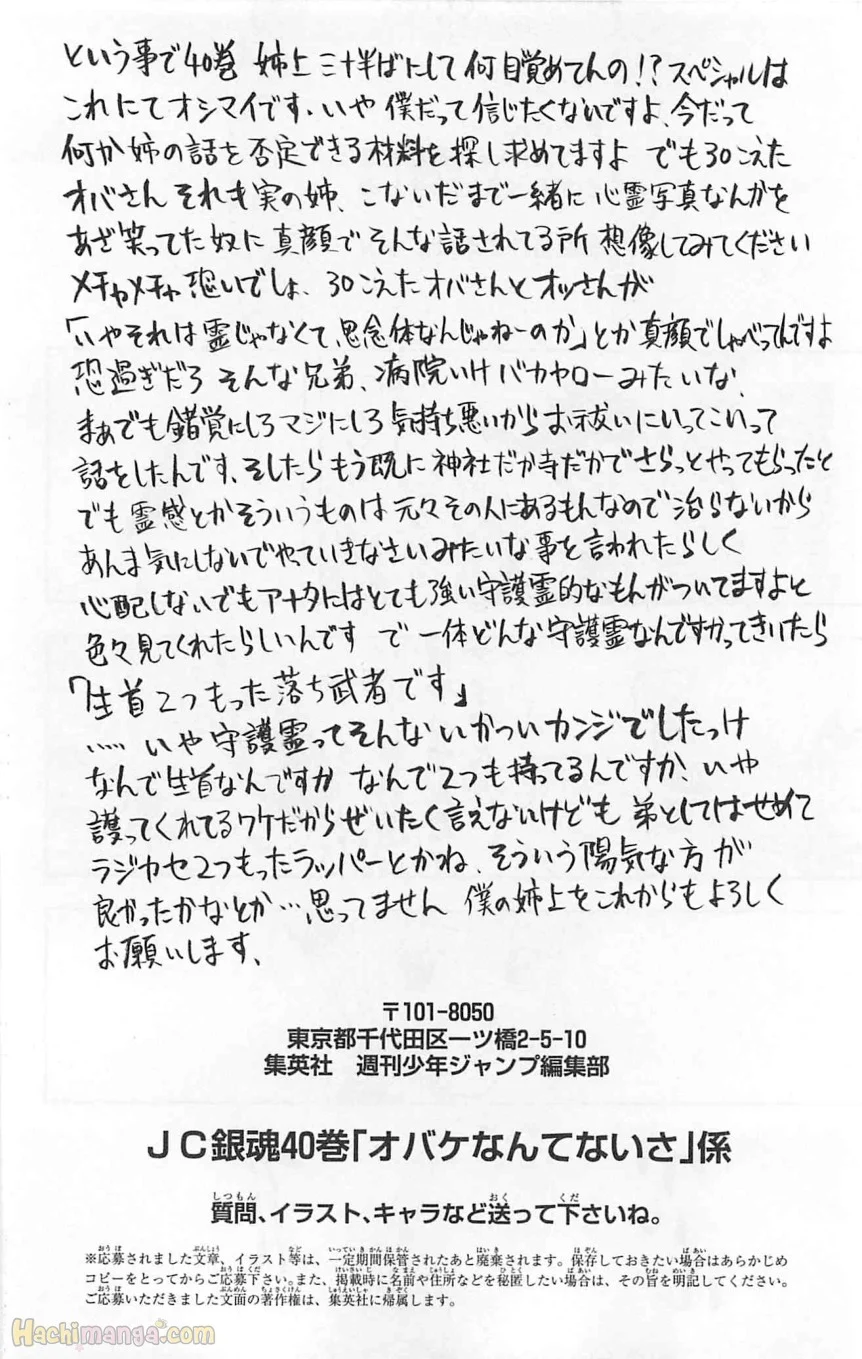 という事で40巻 姉上 三十半ばにして何目覚めてんの!?スペシャルは
これにてオシマイです、いや僕だって信じたくないですよ、今だって
何か姉の話を否定できる材料を探し求めてますよ でも30こえた
オバさん それも実の姉、こないだまで一緒に心霊写真なんかを
あざ笑ってた奴に真顔でそんな話されてる所想像してみてください
メチャメチャ恐いでしょ、30こえたオバさんとオッさんが
「いやそれは霊じゃなくて、思念体なんじゃねーのか」とか真顔でしゃべってんですよ
恐過ぎだろ そんな兄弟、病院いけバカヤローみたいな、
まぁでも錯覚にしろマジにしろ気持ち悪いからお祓いにいってこいって
話をしたんです、そしたらもう既に神社だか寺だかでさらっとやってもらったと
でも霊感とかそういうものは元々その人にあるもんなので治らないから
あんま気にしないでやっていきなさいみたいな事を言われたらしく
心配しないでもアナタにはとても強い守護霊的なもんがついてますよと
色々見てくれたらしいんです で 一体どんな守護霊なんですかってきいたら
「生首2つもった落ち武者です」
‥‥いや守護霊ってそんないかついカンジでしたっけ
なんで生首なんですか なんで2つも持ってるんですか、いや
護ってくれてるワケだからぜいたく言えないけども 弟としてはせめて
ラジカセ2つもったラッパーとかね、そういう陽気な方が
良かったかなとか…思ってません 僕の姉上をこれからもよろしく
お願いします、
〒101-8050
東京都千代田区一ツ橋2-5-10
集英社 週刊少年ジャンプ編集部
JC銀魂40巻「オバケなんてないさ」係
質問、イラスト、キャラなど送って下さいね。
※応募されました文章、イラスト等は、一定期間保管されたあと廃棄されます。保存しておきたい場合はあらかじめ
コピーをとってからご応募下さい。また、掲載時に名前や住所などを秘匿したい場合は、その旨を明記してください。
ご応募いただきました文面の著作権は、集英社に帰属します。
Hachimanga.com